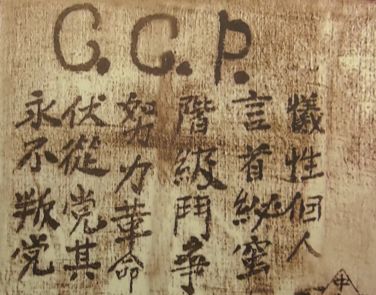 C.C.P.
犧牲個人
言首秘蜜
階級鬥爭
努力革命
伏從党其
永不叛党